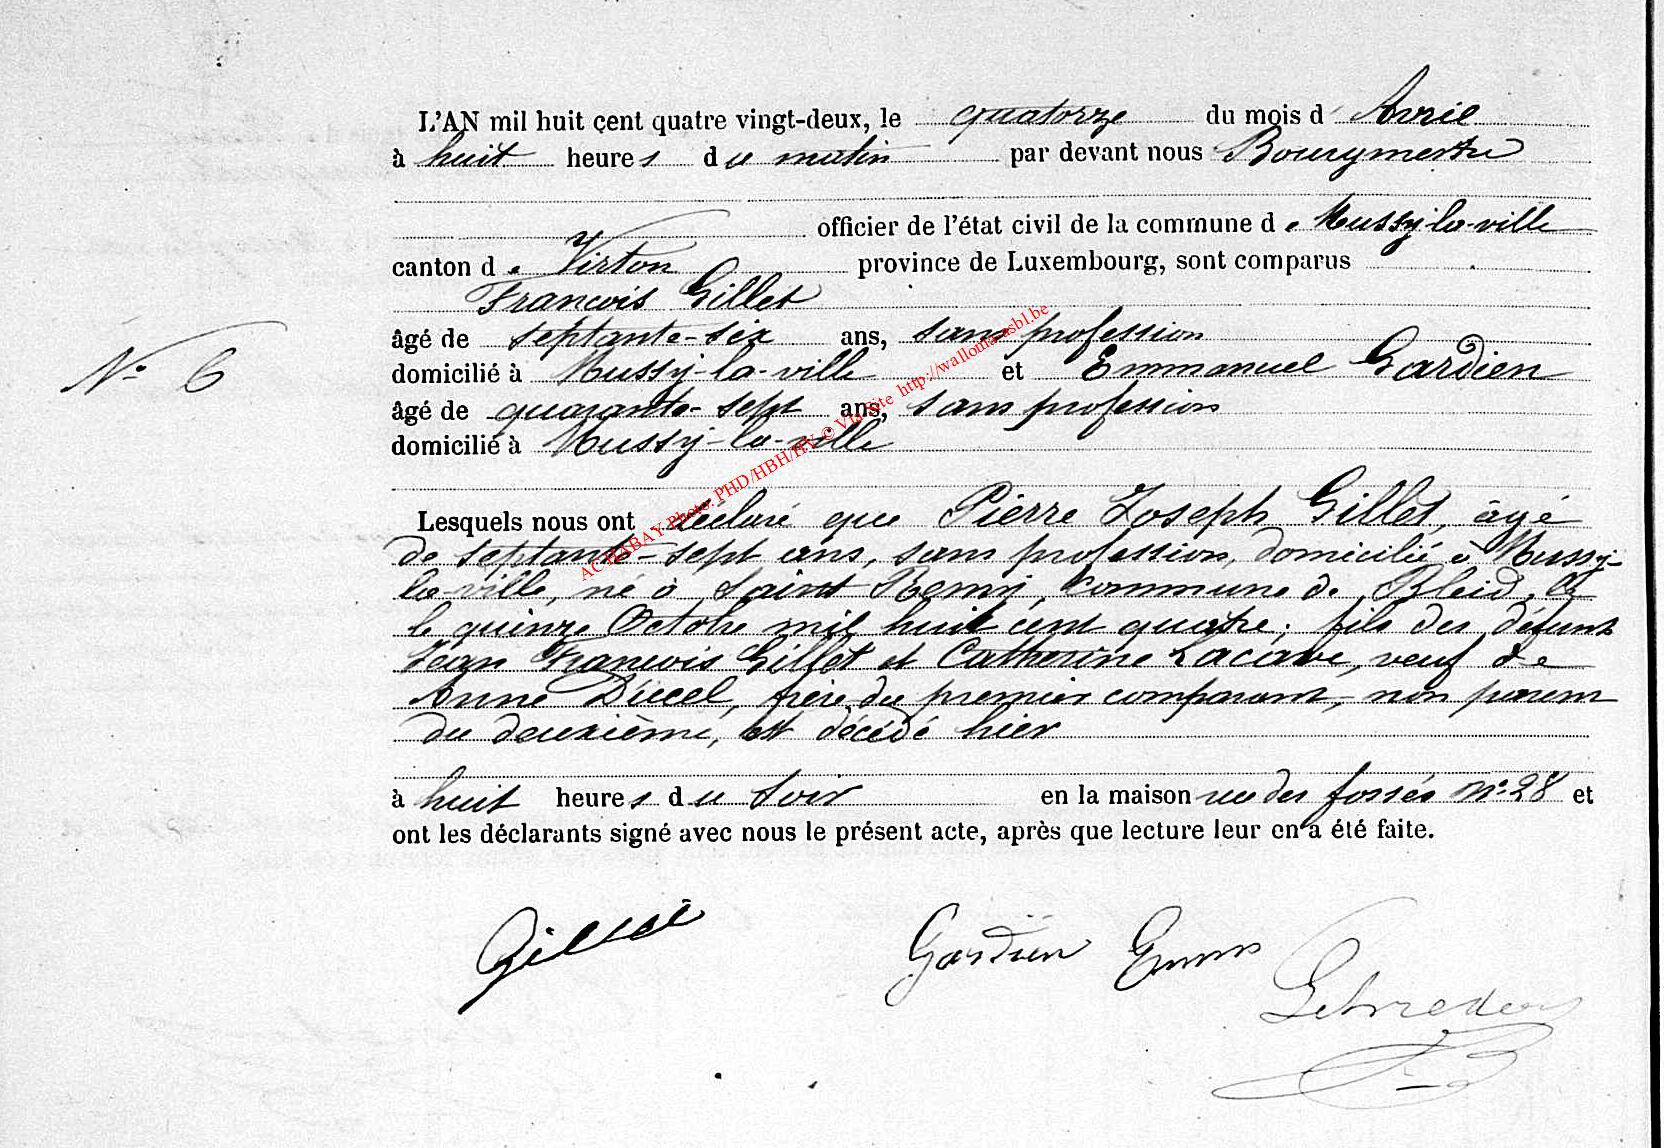 L'AN mil huit cent quatre vingt-deux, le quatorze du mois d' Avril
à huit heures du matin par devant nous Bourgmestre
officier de l'état civil de la commune de Mussy-la-ville
canton de Virton province de Luxembourg, sont comparus
François Gillet
N° 6
âgé de septante-six ans, sans profession
domicilié à Mussy-la-ville et Emmanuel Gardien
âgé de quarante-sept ans, sans profession
domicilié à Mussy-la-ville
Lesquels nous ont déclaré que Pierre Joseph Gillet, âgé
de septante-sept ans, sans profession, domicilié à Mussy-
la-ville, né à Saint Remy, commune de Bleid,
le quinze Octobre mil huit cent quatre, fils des défunts
Jean François Gillet et Catherine Lacave, veuf de
Anne Ducel, frère du premier comparant, non parent
du deuxième, est décédé hier
à huit heures du soir en la maison rue des fossés n° 28 et
ont les déclarants signé avec nous le présent acte, après que lecture leur en a été faite.
Gillet
Gardien Emm
ACHABAY Photo: PHD/HBH/HY © Via Site http://wallonia-asbl.be